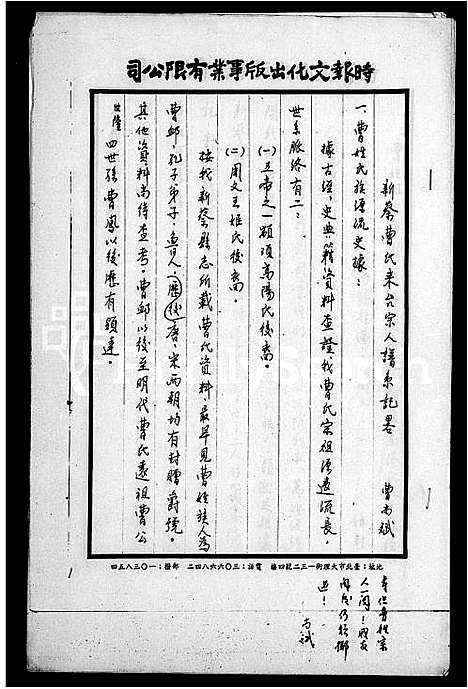 時報文化出版事業有限公司
新蔡曹氏來台宗人譜系記畧　曹尚斌
一曹姓氏族源流史據：
據古經，史典籍資料查證，我曹氏宗祖源遠流長，
世系脈絡有二：
(一)五帝之一顓頊高陽氏後裔。
(二)周文王姬氏後裔。
按我新蔡縣志所載曹氏資料，最早見曹姓族人為
曹卹，孔子弟子，魯人，歷後唐，宋兩朝均有封贈爵號。
其他資料尚待查考。曹卹以後至明代曹氏遠祖曹公
四世孫曹鳳以後歷有顯達。
地址：臺北市大理街一三二號四樓　電話：三〇六六八四二　郵撥：一〇三八五四
人一閱！
尚斌